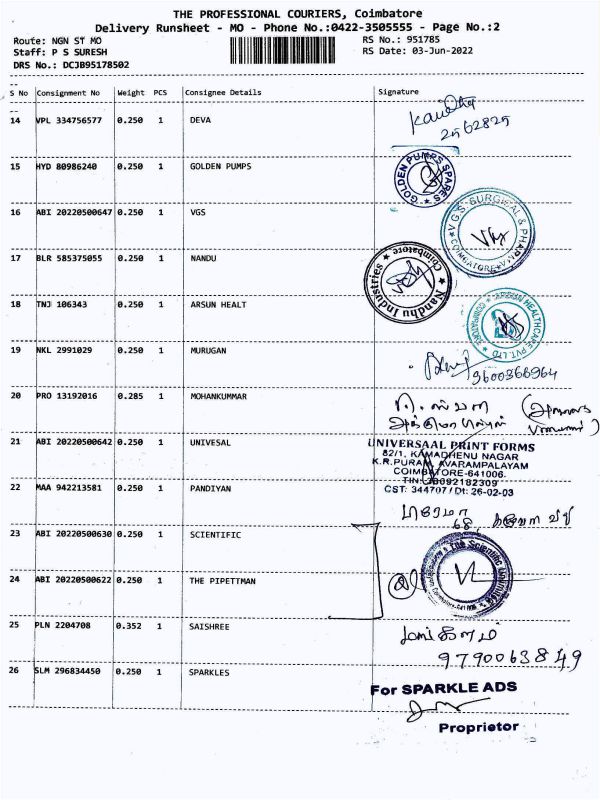 THE PROFESSIONAL COURIERS, Coimbatore
Delivery Runsheet - MO - Phone No.:0422-3505555 - Page No.:2
Route: NGN ST MO RS No.: 951785
Staff: P S SURESH RS Date: 03-Jun-2022
DRS No.: DCJB95178502
S No Consignment No Weight PCS Consignee Details Signature
14 VPL 334756577 0.250 1 DEVA
15 HYD 80986240 0.250 1 GOLDEN PUMPS
GOLDEN PUMPS SPARES
16 ABI 20220500647 0.250 1 VGS
V.G.S. SURGICAL & PHARMA
COIMBATORE
17 BLR 585375055 0.250 1 NANDU
Nandhu Industries
Coimbatore
18 TNJ 106343 0.250 1 ARSUN HEALT
HEALTHCARE PVT. LTD
19 NKL 2991029 0.250 1 MURUGAN
9600366964
20 PRO 13192016 0.285 1 MOHANKUMMAR
21 ABI 20220500642 0.250 1 UNIVESAL
UNIVERSAAL PRINT FORMS
82/1, KAMADHENU NAGAR
K.R.PURAM, AVARAMPALAYAM
COIMBATORE-641006.
CST: 344707 / Dt: 26-02-03
22 MAA 942213581 0.250 1 PANDIYAN
23 ABI 20220500630 0.250 1 SCIENTIFIC
The Scientific
24 ABI 20220500622 0.250 1 THE PIPETTMAN
25 PLN 2204708 0.352 1 SAISHREE
9790063849
26 SLM 296834450 0.250 1 SPARKLES
For SPARKLE ADS
Proprietor